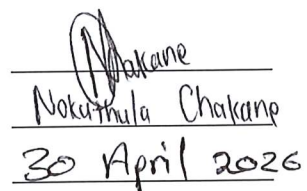 Nokuthula Chakane
30 April 2026